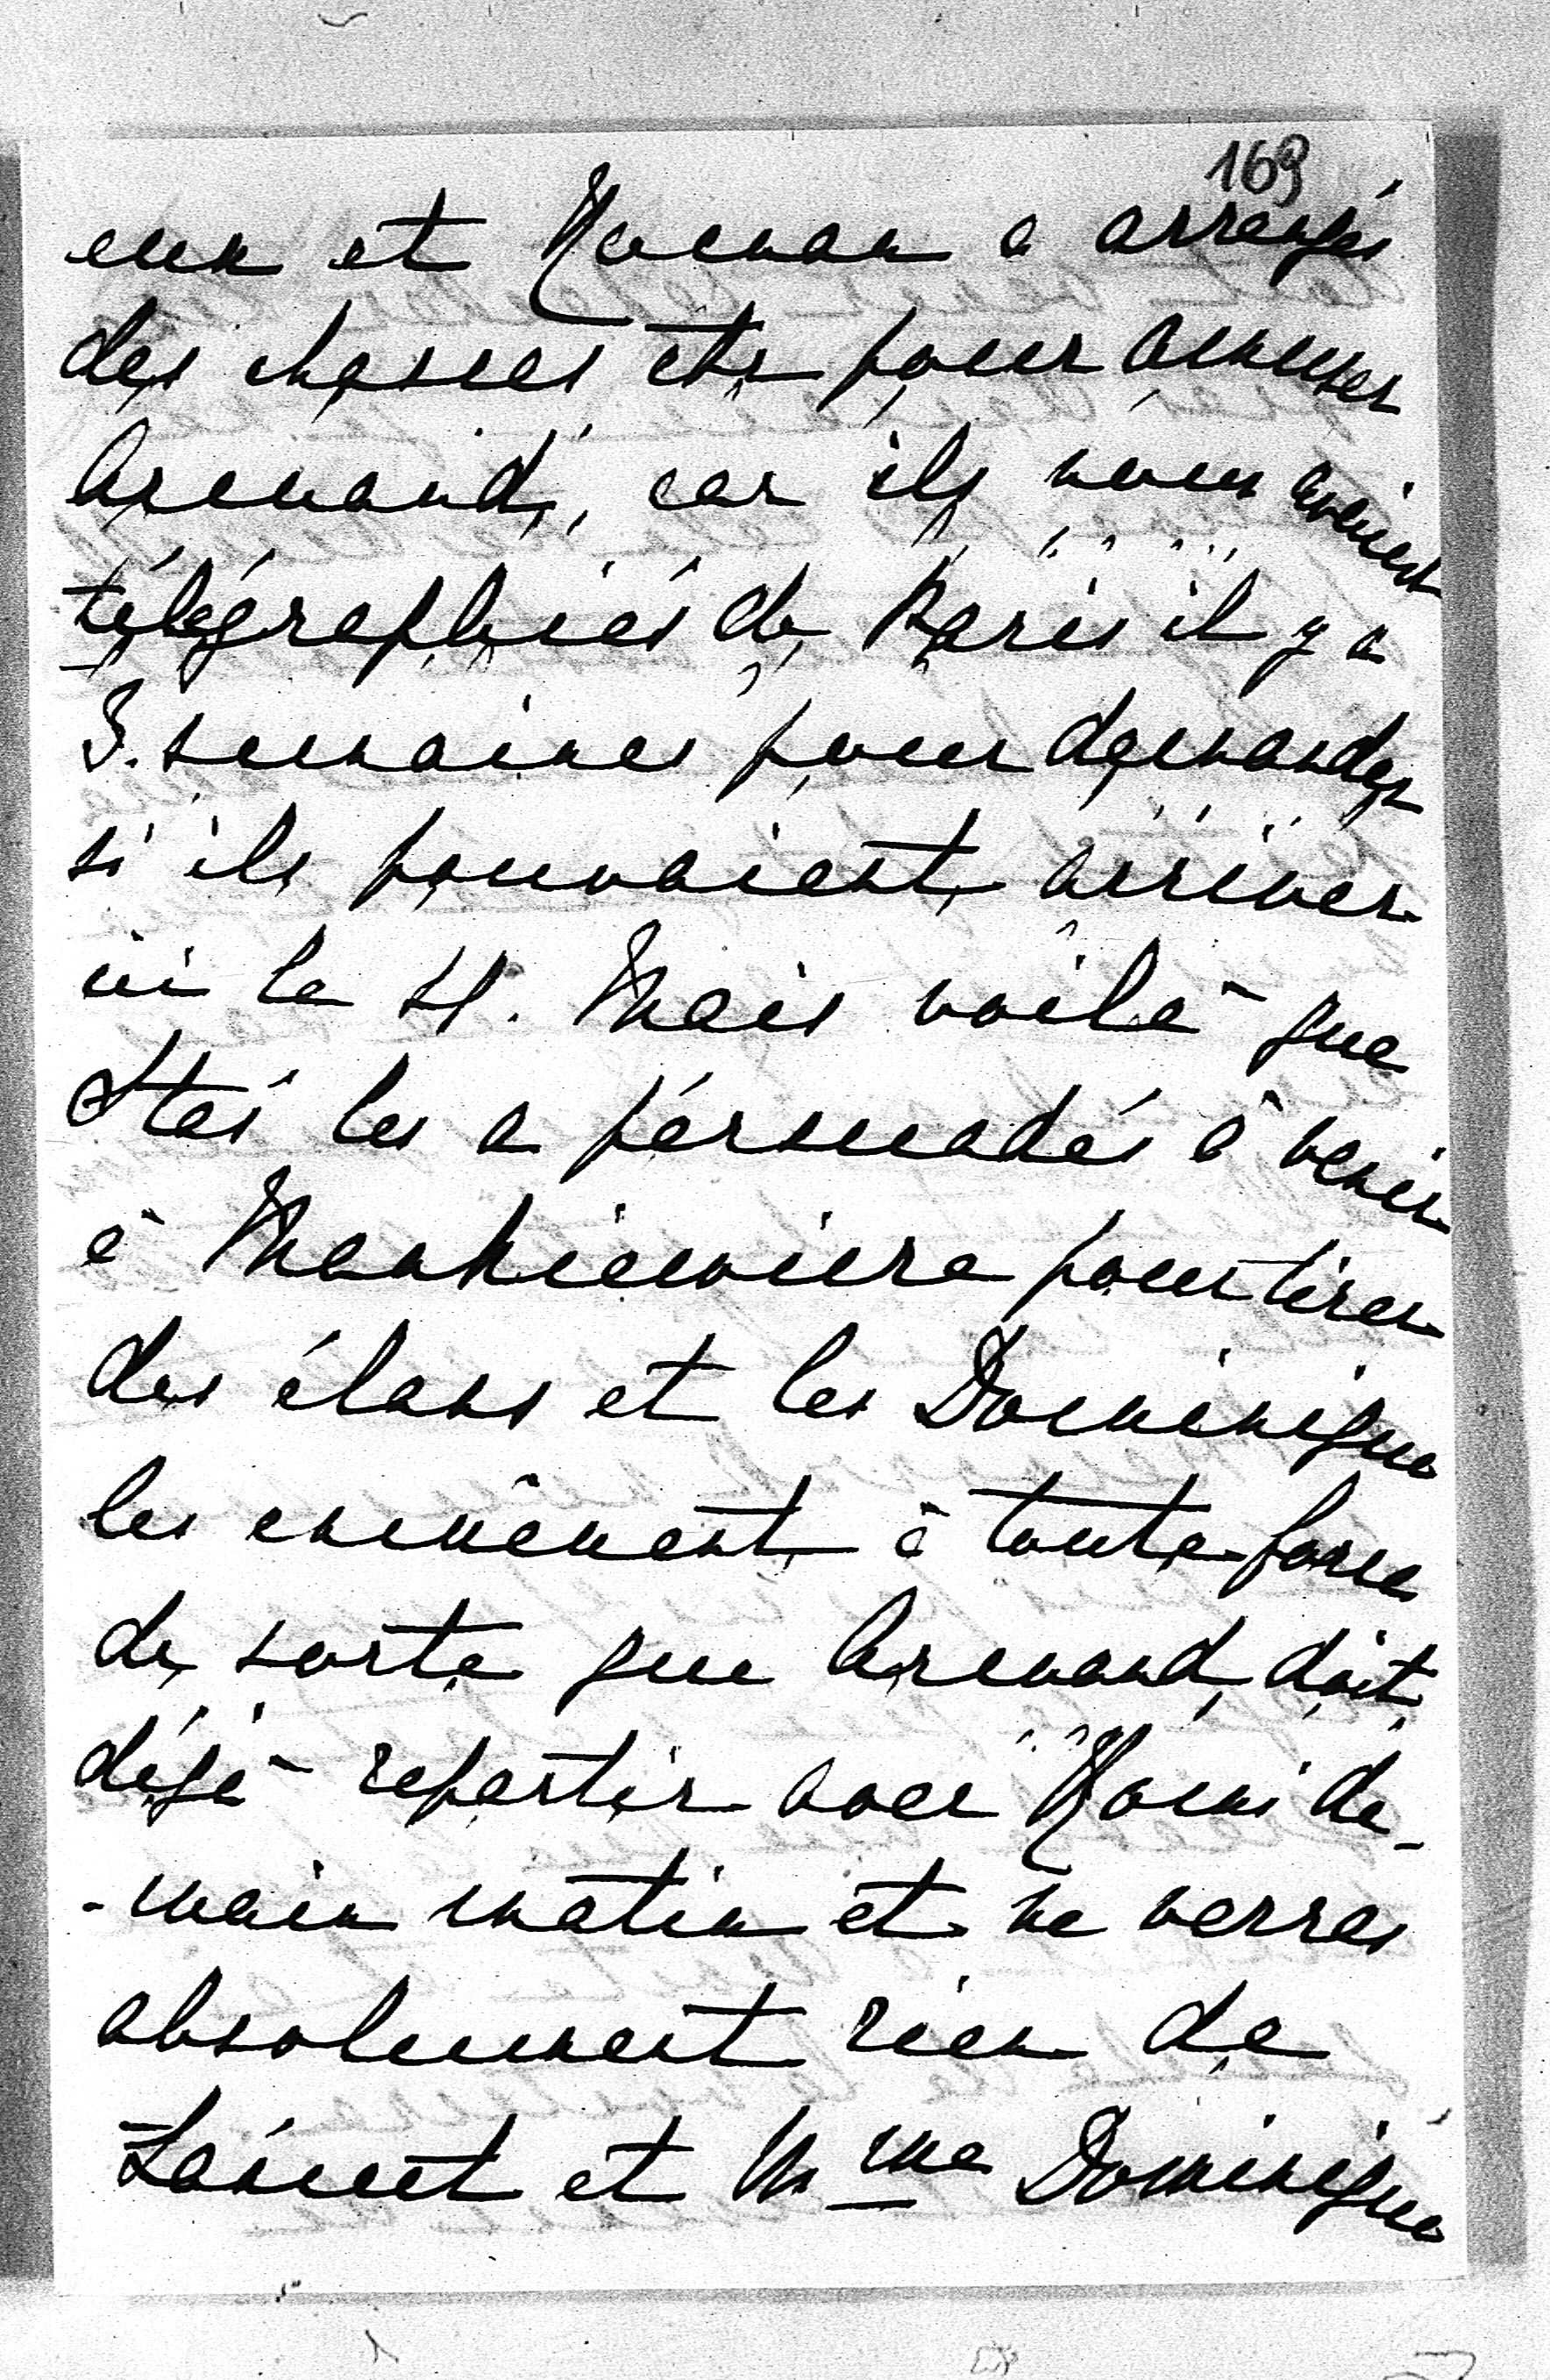 169
eux et Roman a arrangé
des chasses etc pour amuser
Armand, car ils nous avaient
télégraphiés de Paris il y a
3. semaines pour demander
si ils pouvaient arriver
ici le 4. Mais voilà que
les a persuadés à venir
à Mankiewicze pour tirer
des élans et les Dominique
les emmènent à toute force
de sorte que Armand doit
déjà repartir avec Romi de-
-main matin et ne verras
absolument rien de
Łańcut et Mme Dominique